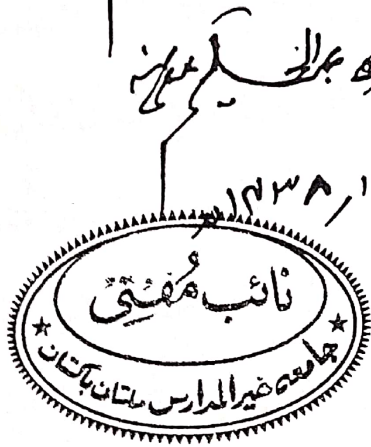 عبدالحکیم عفی عنہ
۱۴۳۸ھ
نائب مُفتی
جامعہ خیر المدارس ملتان پاکستان